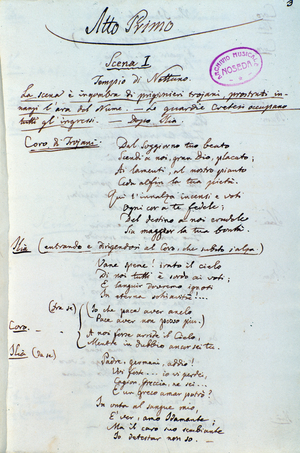 3
Atto Primo
Scena I
Tempio di Nettuno.
ARCHIVIO MUSICALE
NOSEDA
La scena è ingombra di prigionieri trojani, prostrati in-
nanzi l'ara del Nume — Le guardie Cretesi occupano
tutti gl'ingressi. — Dopo Ilia.
Coro di Trojani:
Dal soggiorno tuo beato
Scendi a noi, gran dio, placato;
Ai lamenti, al nostro pianto
Ceda alfin la tua pietà.
Qui s'innalza incensi e voti
Ogni cor a te fedele;
Del destino a noi crudele
Sia maggior la tua bontà.
Ilia (entrando e dirigendosi al Coro, che subito s'alza)
Vane spene! irato il cielo
Di noi tutti è sordo ai voti;
E languir dovremo ignoti
In eterna schiavitù!...
Coro.
(fra se)
Io che pace aver anelo
Pace aver non posso più.
A noi forse arride il Cielo,
Mentre in dubbio ancor sei tu.
Ilia (da se)
Padre, germani, addio!
Voi foste... io vi perdei,
Cagion Grecia, ne sei...
E un greco amar potrò?
In onta al sangue mio,
E' ver, amo Idamante;
Ma il caro suo sembiante
Io detestar non so. —